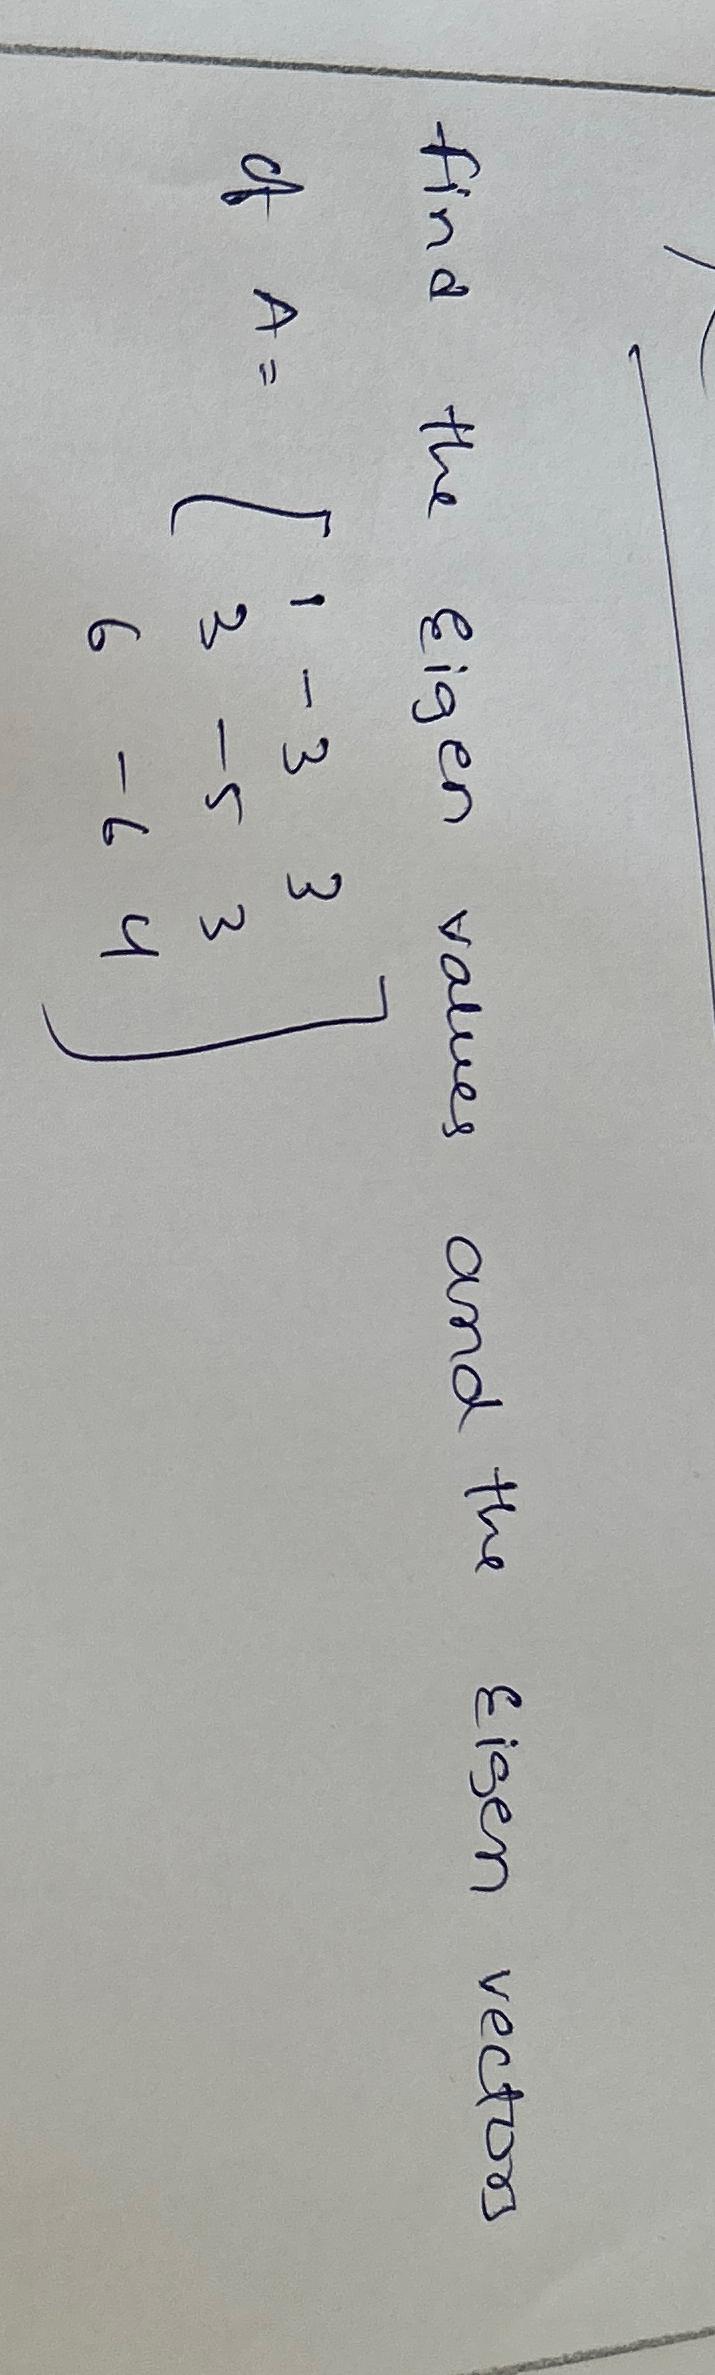 find the Eigen values and the Eigen vectors
of A = [ 1 -3 3
3 -5 3
6 -6 4 ]